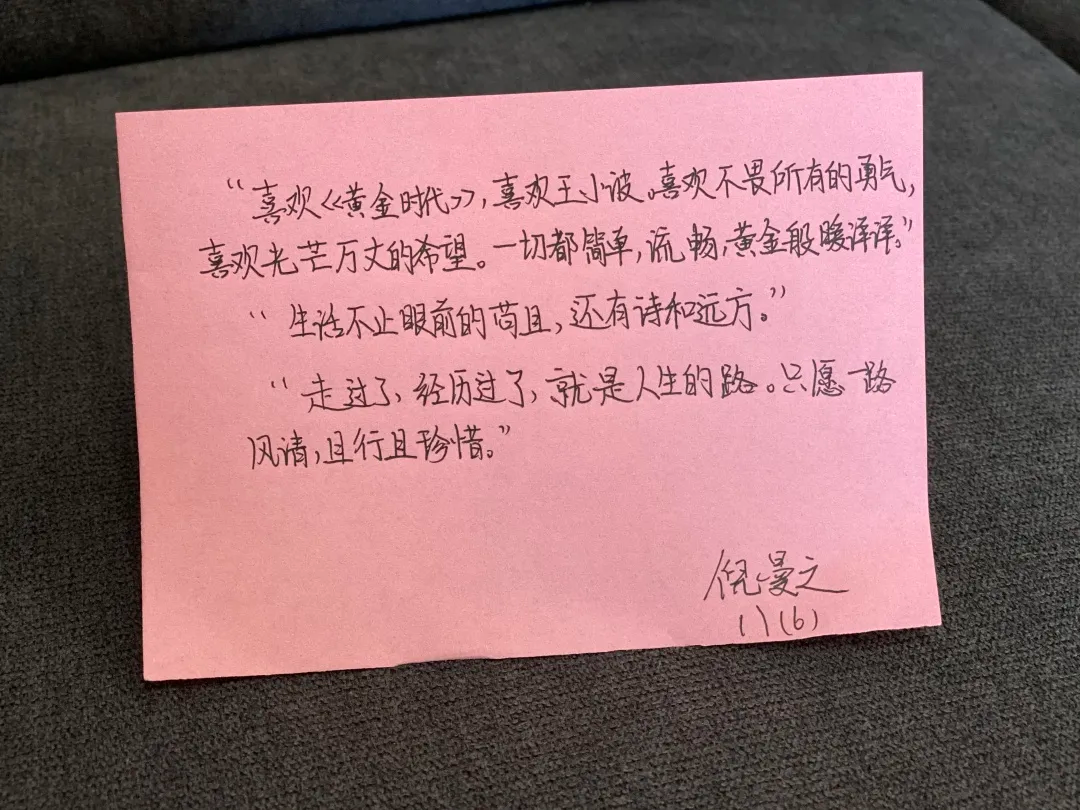 “喜欢《黄金时代》,喜欢王小波。喜欢不畏所有的勇气,
喜欢光芒万丈的希望。一切都简单,流畅,黄金般暖洋洋。”
“生活不止眼前的苟且,还有诗和远方。”
“走过了,经历过了,就是人生的路。只愿一路
风清,且行且珍惜。”
倪曼之
11(6)